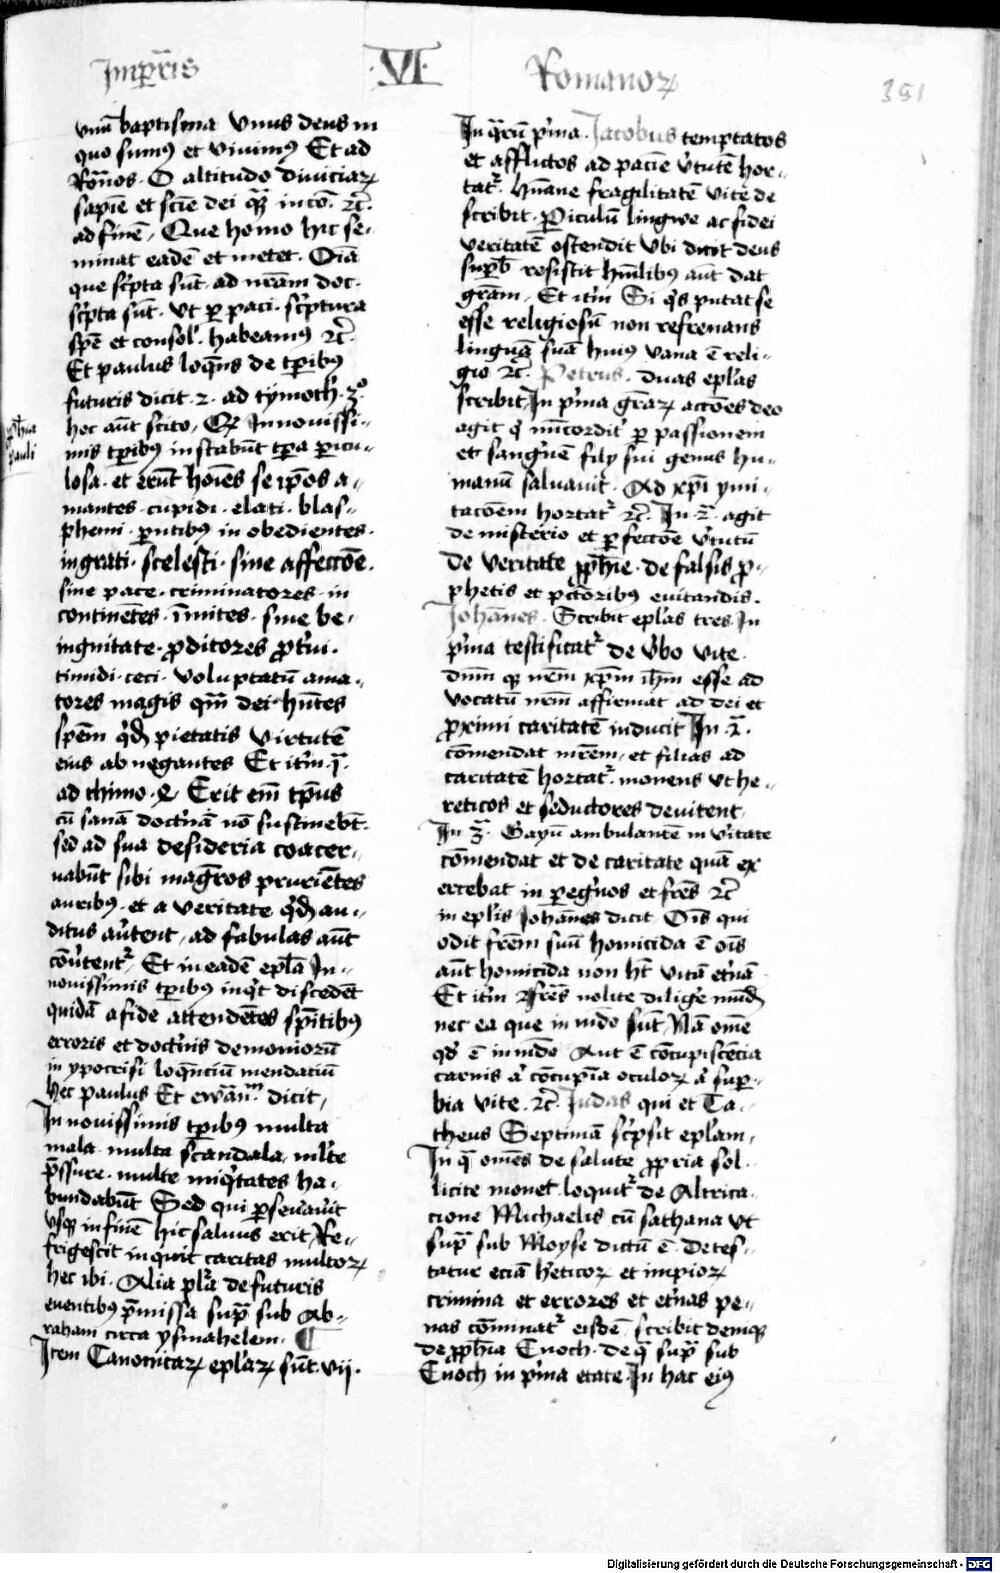 Imp̄ris · VI · Romanoꝝ
351
vnū baptisma vnus deus in
quo sumꝰ et viuimꝰ Et ad
Ro̅nos · O altitudo diuiciaꝝ
sapīe et sciē dei
ad finē / Que homo hic se-
minat eadē et metet · Oīa
que sc̓pta sūt · ad nr̄am doc·
sc̓pta sūt · vt ꝑ paci · sc̓ptura
spē et consol̓ · habeamꝰ ⁊c̄
Et paulus loq̄ns de tꝑibꝰ
futuris dicit · 2 · ad tymoth̓ · 3°
hec aūt scito / Qꝫ In nouissi-
mis tꝑibꝰ instabūt tꝑa ꝑicu-
losa · et erūt hoīes se ip̄os a-
mantes · cupidi · elati · blas-
phemi · ꝑntibꝰ in obedientes ·
ingrati · scelesti · sine affecc̄oe ·
sine pace · criminatores · in
continētes · īmites · sine be-
ingnitate · ꝓditores ꝓt̓ui ·
timidi · ceci · voluptatū ama-
tores magis qm̄ dei · hn̄tes
spēm q̓dē pietatis virtutē
eius ab negantes Et it̓m · ī ·
ad thimo · Erit em̄ tp̄us
cū sanā doct̓nā nō sustinebt̄ ·
sed ad sua desideria coacer-
uabūt sibi magr̄os pruriētes
auribꝰ · et a veritate q̓dē au-
ditus au̓tent / ad fabulas aūt
cōu̓tentᷣ / Et in eadē epl̄a In-
nouissimis tꝑibꝰ inq̓t discedēt
quidā a fide attendētes sp̄itibꝰ
erroris et doct̓nis demoniorū
in ypocrisi loq̄nciū mendaciū
hec paulus Et ewāᵐ · dicit /
In nouissimis tꝑibꝰ multa
mala · multa scandala · ml̓te
p̄ssure · multe iniq̓tates ha-
bundabūt Sed qui ꝑseu̓auit
vsqꝫ in finē hic saluus erit / Re-
frigescit inquit caritas multoꝝ
hec ibi · Alia pl̓a de futuris
euentibꝰ p̄missa sup̄ sub Ab-
raham circa ysmahelem · ¶
Item Canonicaꝝ epl̓aꝝ sūt · vii ·
ꝓph̓ia
Pauli
In q̄rū p̓ma · Jacobus temptatos
et afflictos ad pacīe v̓tutē hor-
tatᷣ · hūane fragilitatē vite de
scribit · Ꝑiculū lingwe ac fidei
veritatē ostendit Vbi dicit deus
suꝑb̓ resistit hūilibꝰ aūt dat
gr̄am / Et it̓m Si q̓s putat se
esse religiosū non refrenans
linguā suā huiꝰ vana ē reli-
gio ⁊c̄ · Petrus · duas epl̓as
scribit / In p̓ma gr̄aꝝ acc̄oēs deo
agit q̓ mīcordit̓ ꝑ passionem
et sanguīē filij sui genus hu-
manū saluauit · Ad xp̄i ymi-
tac̄oēm hortatᷣ ⁊c̄ · In · 2ᵃ · agit
de misterio et ꝑfecc̄oē v̓tutū
de veritate ꝓph̓ie · de falsis ꝓ-
phetis et pc̄c̄oribꝰ euitandis ·
Johānes · Scribit epl̓as tres In
p̓ma testificatᷣ de v̓bo vite ·
dn̄m qꝫ nr̄m xp̄m ih̄m esse ad
vocatū nr̄m affirmat ad dei et
ꝓximi caritatē inducit In · 2ᵃ ·
cōmendat mr̄em · et filias ad
caritatē hortatᷣ · monens vt he-
reticos et seductores deuitent ·
In 3ᵃ · Gayū ambulantē in v̓itate
cōmendat et de caritate quā ex
ercebat in ꝑegr̓nos et frēs ⁊c̄
in epl̓is Johānes dicit Oīs qui
odit frēm suū homicida ē oīs
aūt homicida non ht̄ vitā et̓nā
Et it̓m frēs nolite dilig̓e mūdū
nec ea que in mdo sūt / Nā om̄e
qd̓ ē in mdo Aut ē cōcupiscēcia
carnis a̓ cōcupīa oculoꝝ a̓ suꝑ-
bia vite · ⁊c̄ · Judas qui et Ta-
theus Septimā sc̓psit epl̓am /
In q̄ om̄es de salute ꝓpria sol-
licite monet · loquitᷣ de Altrica-
cione Michaelis cū sathana vt
sup̄ sub Moyse dictū ē · Detes-
tatur eciā h̓eticoꝝ et impioꝝ
crimina et errores et et̓nas pe-
nas cōminatᷣ eisdē · scribit demqꝫ
de ꝓph̓ia Enoch · de q̄ sup̄ sub
Enoch in p̓ma etate · In hac eiꝰ
Digitalisierung gefördert durch die Deutsche Forschungsgemeinschaft - DFG